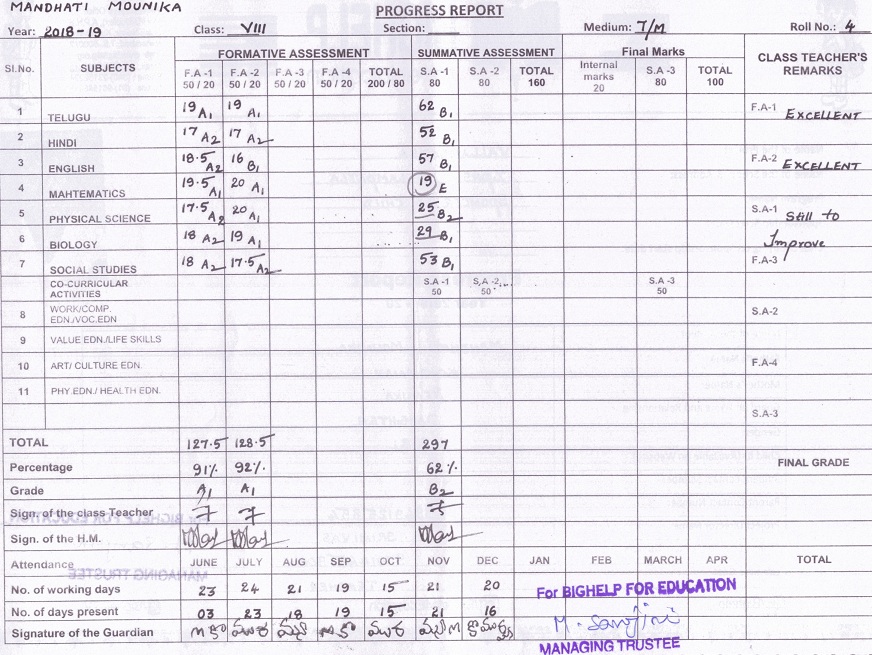 MANDHATI MOUNIKA
PROGRESS REPORT
Year: 2018-19 Class: VIII Section: Medium: T/M Roll No.: 4
Sl.No. SUBJECTS FORMATIVE ASSESSMENT SUMMATIVE ASSESSMENT Final Marks CLASS TEACHER'S REMARKS
F.A -1 50 / 20 F.A -2 50 / 20 F.A -3 50 / 20 F.A -4 50 / 20 TOTAL 200 / 80 S.A -1 80 S.A -2 80 TOTAL 160 Internal marks 20 S.A -3 80 TOTAL 100
1 TELUGU 19 A1 19 A1 62 B1 F.A-1 EXCELLENT
2 HINDI 17 A2 17 A2 52 B1
3 ENGLISH 18.5 A2 16 B1 57 B1 F.A-2 EXCELLENT
4 MAHTEMATICS 19.5 A1 20 A1 19 E
5 PHYSICAL SCIENCE 17.5 A2 20 A1 25 B2 S.A-1 Still to
6 BIOLOGY 18 A2 19 A1 29 B1 Improve
7 SOCIAL STUDIES 18 A2 17.5 A2 53 B1 F.A-3
CO-CURRICULAR ACTIVITIES S.A -1 50 S.A -2 50 S.A -3 50
8 WORK/COMP. EDN./VOC.EDN S.A-2
9 VALUE EDN./LIFE SKILLS
10 ART/ CULTURE EDN. F.A-4
11 PHY.EDN./ HEALTH EDN.
S.A-3
TOTAL 127.5 128.5 297
Percentage 91% 92% 62% FINAL GRADE
Grade A1 A1 B2
Sign. of the class Teacher
Sign. of the H.M.
Attendance JUNE JULY AUG SEP OCT NOV DEC JAN FEB MARCH APR TOTAL
No. of working days 23 24 21 19 15 21 20
For BIGHELP FOR EDUCATION
No. of days present 03 23 18 19 15 21 16
Signature of the Guardian
MANAGING TRUSTEE